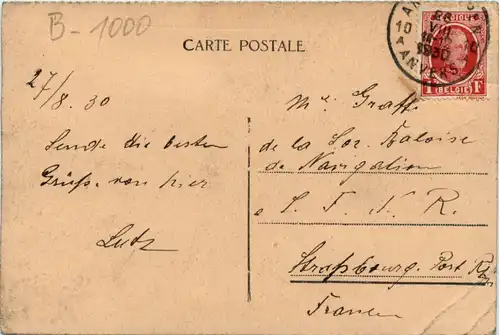 B-1000
CARTE POSTALE
ANVERS
1930
BELGIQUE
1F BELGIË 1F
27/8.30
Sende die besten
Grüsse von hier
Lutz
Mr. Graff
de la Soc. Baloise
de Navigation
S. F. N. R.
Strassbourg. Port Rh
France